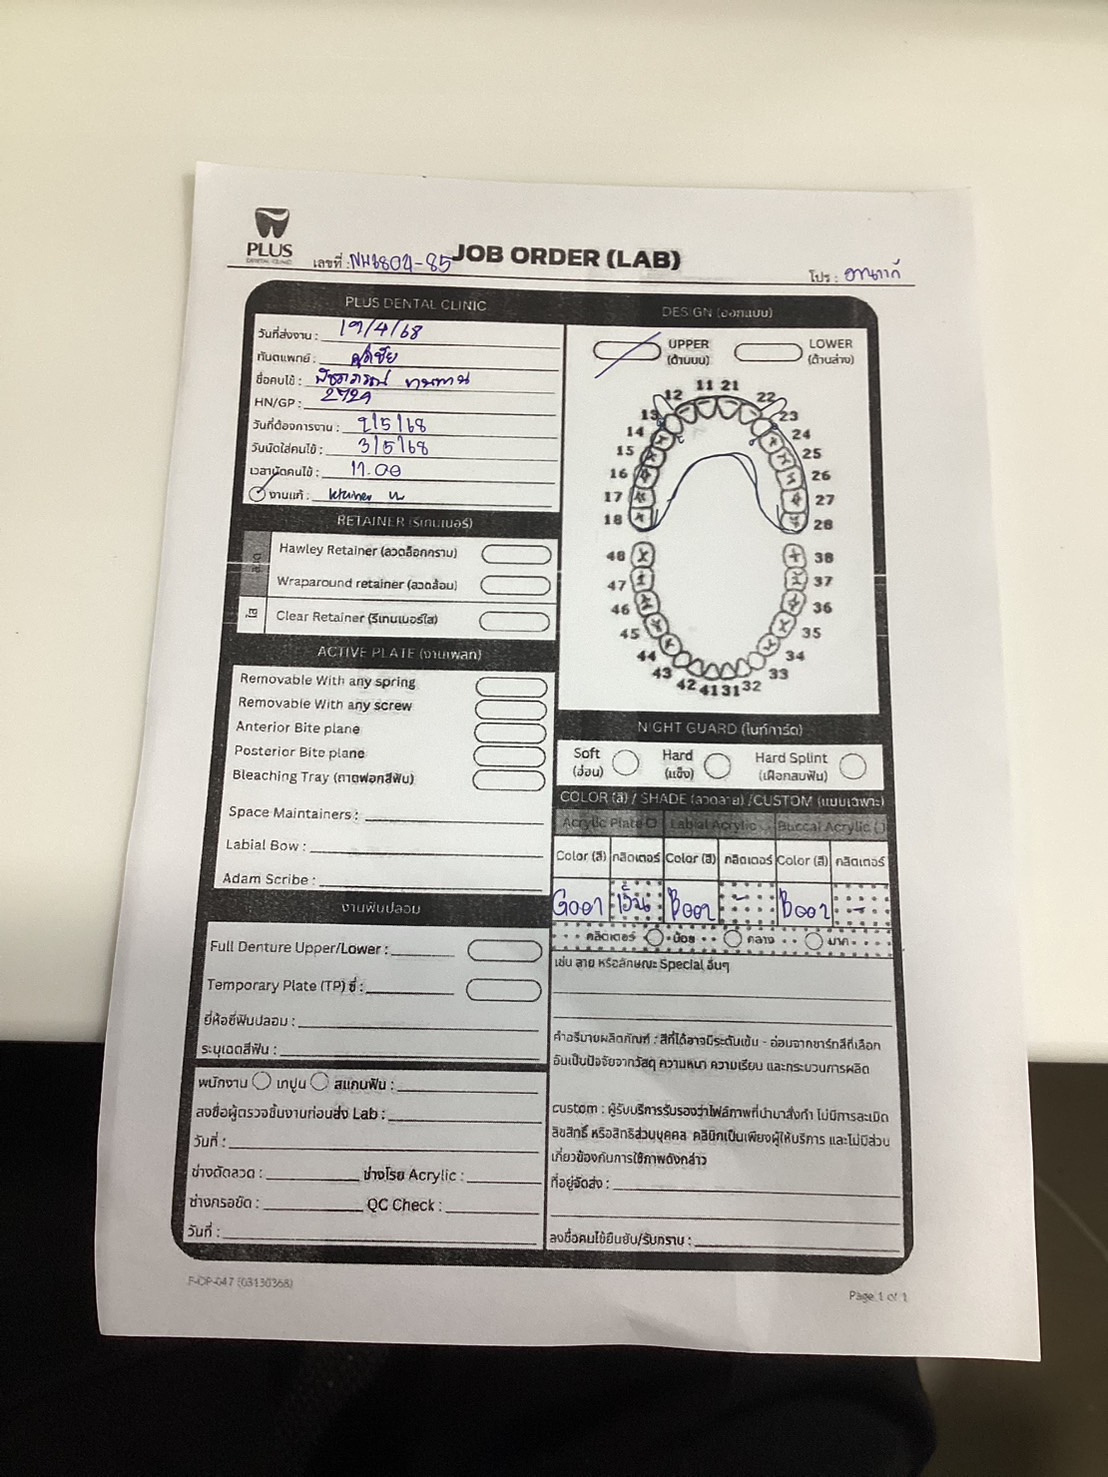 PLUS
DENTAL CLINIC
เลขที่ : NM6804-85
JOB ORDER (LAB)
โปร :
PLUS DENTAL CLINIC
วันที่ส่งงาน : 19/4/68
ทันตแพทย์ :
ชื่อคนไข้ :
HN/GP : 2729
วันที่ต้องการงาน : 2/5/68
วันนัดใส่คนไข้ : 3/5/68
เวลานัดคนไข้ : 17.00
งานแก้ : Retainer บน
RETAINER (รีเทนเนอร์)
Hawley Retainer (ลวดล็อกกราม)
Wraparound retainer (ลวดล้อม)
ใส
Clear Retainer (รีเทนเนอร์ใส)
ACTIVE PLATE (งานเพลท)
Removable With any spring
Removable With any screw
Anterior Bite plane
Posterior Bite plane
Bleaching Tray (ถาดฟอกสีฟัน)
Space Maintainers :
Labial Bow :
Adam Scribe :
งานฟันปลอม
Full Denture Upper/Lower :
Temporary Plate (TP) ซี่ :
ยี่ห้อซี่ฟันปลอม :
ระบุเฉดสีฟัน :
พนักงาน เทปูน สแกนฟัน :
ลงชื่อผู้ตรวจชิ้นงานก่อนส่ง Lab :
วันที่ :
ช่างดัดลวด : ช่างโรย Acrylic :
ช่างกรอขัด : QC Check :
วันที่ :
DESIGN (ออกแบบ)
UPPER
(ด้านบน)
LOWER
(ด้านล่าง)
11 21
12 22
13 23
14 24
15 25
16 26
17 27
18 28
48 38
47 37
46 36
45 35
44 34
43 33
42 41 31 32
NIGHT GUARD (ไนท์การ์ด)
Soft
(อ่อน)
Hard
(แข็ง)
Hard Splint
(เฝือกสบฟัน)
COLOR (สี) / SHADE (ลวดลาย) /CUSTOM (แบบเฉพาะ)
Acrylic Plate Labial Acrylic Buccal Acrylic
Color (สี) กลิตเตอร์ Color (สี) กลิตเตอร์ Color (สี) กลิตเตอร์
G001 เงิน B001 - B001 -
กลิตเตอร์ น้อย กลาง มาก
เช่น ลาย หรือลักษณะ Special อื่นๆ
คำอธิบายผลิตภัณฑ์ : สีที่ได้อาจมีระดับเข้ม - อ่อนจากชาร์ทสีที่เลือก
อันเป็นปัจจัยจากวัสดุ ความหนา ความเรียบ และกระบวนการผลิต
custom : ผู้รับบริการรับรองว่าไฟล์ภาพที่นำมาสั่งทำ ไม่มีการละเมิด
ลิขสิทธิ์ หรือสิทธิส่วนบุคคล คลินิกเป็นเพียงผู้ให้บริการ และไม่มีส่วน
เกี่ยวข้องกับการใช้ภาพดังกล่าว
ที่อยู่จัดส่ง :
ลงชื่อคนไข้ยืนยัน/รับทราบ :
F-DP-047 (03130368)
Page 1 of 1